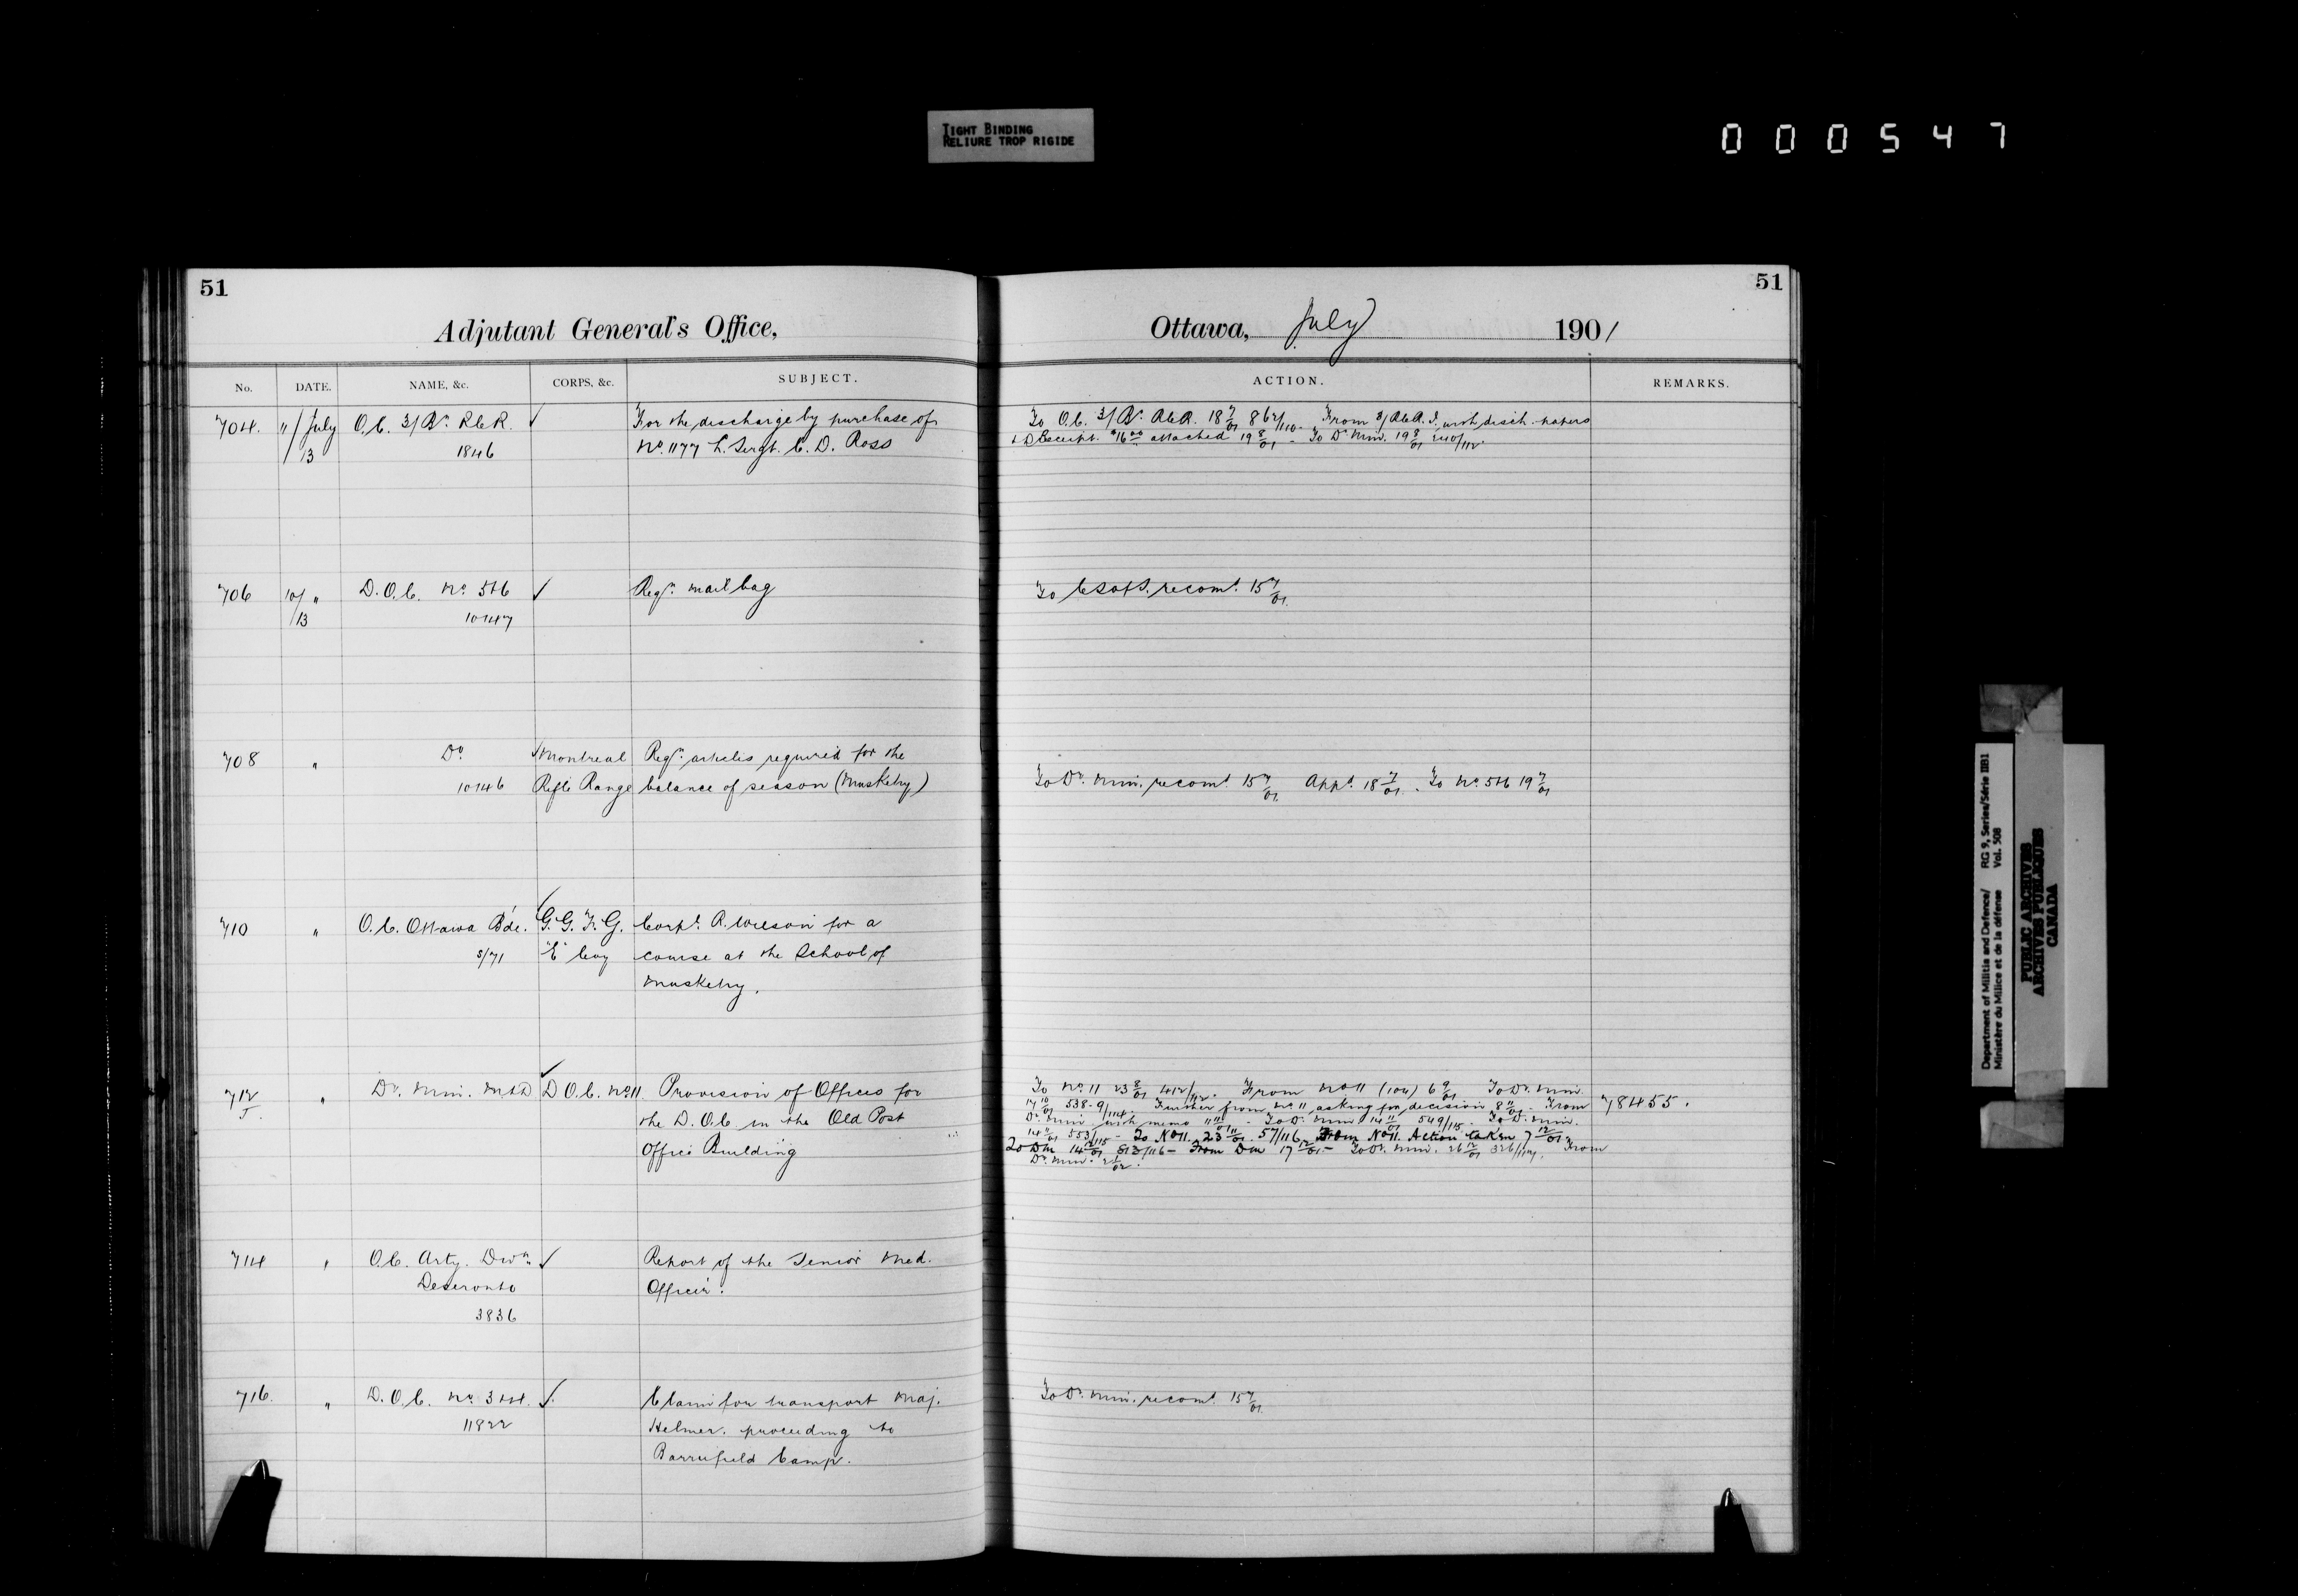 TIGHT BINDING
RELIURE TROP RIGIDE
000547
51
51
Adjutant General's Office,
Ottawa, July 1901
No. DATE. NAME, &c. CORPS, &c. SUBJECT. ACTION. REMARKS.
704. 11/July O.C. 3/Bn. R.C.R. ✓ For the discharge by purchase of To O.C. 3/Bn. R.C.R. 18 7/01 862/110. From 3/R.C.R.I. with disch. papers
/13 1846 No. 1177 L. Sergt. C. D. Ross & D Receipt. $16.00 attached 19 8/01 - To Dy. Min. 19 8/01 240/112.
706 10/ " D.O.C. No. 5&6 ✓ Reqn. mail bag To C.S. of S. recomd. 15 7/01.
/13 10147
708 " Do. ✓ Montreal Reqn. articles required for the
10146 Rifle Range balance of season (Musketry) To Dy. Min. recomd. 15 7/01. Appd. 18 7/01. To No. 5&6 19 7/01
710 " O.C. Ottawa Bde. ✓ G.G.F.G. Corpl. R. Wilson for a
5/71 "E" Coy course at the School of
Musketry.
712 " Dy. Min. M&D ✓ D.O.C. No. 11 Provision of Offices for To No. 11 23 8/01 412/112. From No. 11 (104) 6 9/01 To Dy. Min.
the D.O.C. in the Old Post 17 10/01 538-9/114. Further from No. 11 asking for decision 8 11/01. From 78455.
Office Building Dy. Min. with memo 11 11/01 - To Dy. Min 14 11/01 549/115. To Dy. Min.
14 11/01 553/115 - To No 11. 23 11/01 57/116 From No 11. Action taken 7 12/01.
To Dm 14 12/01 513/116 - From Dm 17 12/01 - To Dy. Min. 26 12/01 326/117. From
Dy. Min. 2 1/02.
714 " O.C. Arty. Divn. ✓ Report of the Senior Med.
Deseronto Officer.
3836
716. " D.O.C. No. 3&4. ✓ Claim for transport Maj. To Dy. Min. recomd. 15 7/01.
11822 Helmer. proceeding to
Barriefield Camp.
Department of Militia and Defence/ RG 9, Series/Série IIB1
Ministère du Milice et de la défense Vol. 508
PUBLIC ARCHIVES
ARCHIVES PUBLIQUES
CANADA